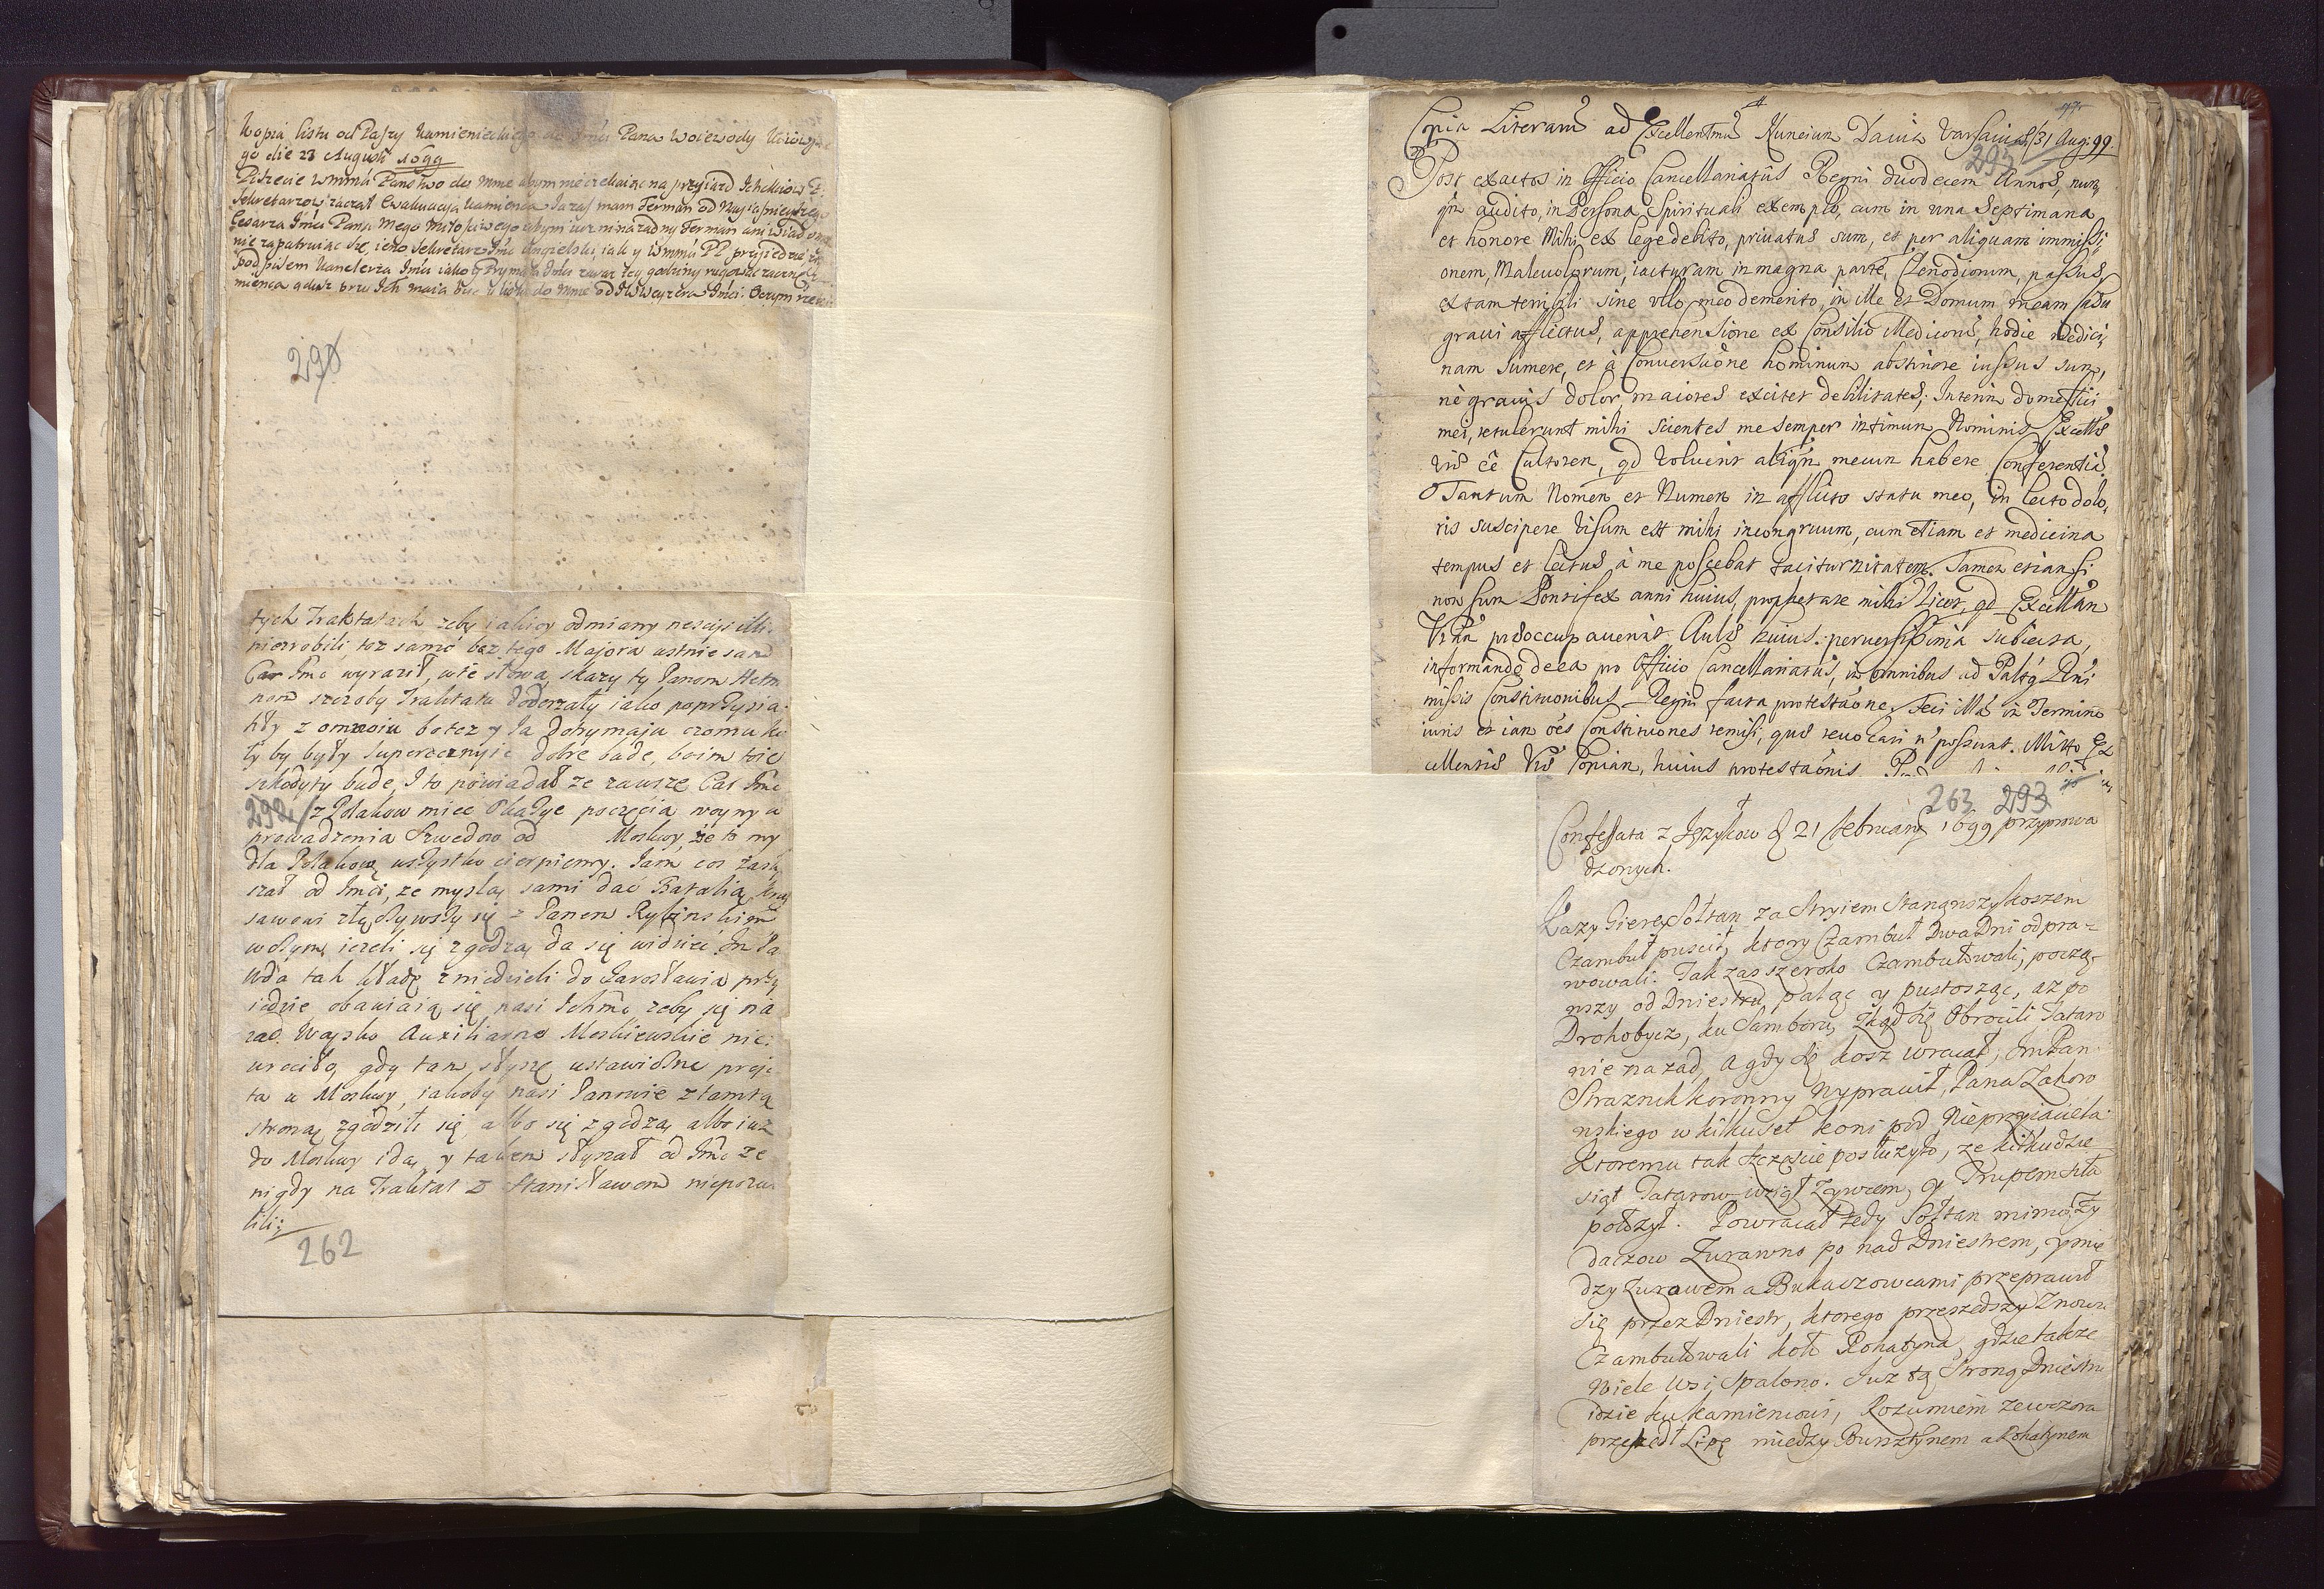 Kopia listu od Baszy Kamienieckiego do Pana Woiewody Kiiowskie
go die 23 Augusti 1699
Piszecie Wmmm Państwo do mnie abym nie czekaiąc na przyiazd Ichmciow P.
Sekretarzow zaczął Ewakuacyą Kamienca Ia zas mam Ferman od Nayiasnieyszego
Cesarza Imci Pana Mego Miłosciwego abym
nie zapatruiąc się, ieno Sekretarz Imci Angielski, iak y Wmmm PP przyiedzie
podpisem Kanclerza Imci iako y Pryma
mienca gdysz przy Ich maia bydz listy do mnie od Wezyra Imci.
290
tych Traktatach zeby iakiey odmiany
nierobili, toz samo bez tego Majora ustnie sam
Car Imc wyraził, w te słowa, skazy ty Panom Hetm
nom szczoby Traktatu doderzały iako poprzysia
hły z omnoiu botez y Ia dotrymaju, czomu ko
ły by były superecznyie dobre bude, boim toie
szkodyty bude, I to powiadał ze zawsze Car Imc
292 z Polakow miec Okazye poczęcia woyny a
prowadzenia Szwedow od Moskwy, że to my
dla Polakow wszystko cierpiemy. Iam cos zasły
szał od Imci, ze myslą sami dac Batalią,
złączywszy się z Panem Rybinskim
w czym iezeli się zgodzą da się widziec Im Pa
uda tak kładę z niedzieli do Iarosławia przy
iedzie, obawiaią się nasi Ichmc zeby się na
zad Woysko Auxiliarne Moskiewskie nie
wrociło, gdy tam słyszę ustawiczne
ta u Moskwy, iakoby nasi Panowie z tamtą
stroną zgodzili się albo się zgodzą albo iuż
do Moskwy idą, y takem słyszał od Imci ze
nigdy na Traktat z Stanisławem niepozwo
lili
262
Copia Literarũ ad Excellentmũ Nuncium Davia Varsaviae 31 Aug: 99
293
Post exactos in Officio Cancellariatus Regni duodecem Annos, nun
qm audito, in Persona Spirituali exemplo, cum in una Septimana
et honore Mihi ex lege debito, privatus sum, et per aliquam immissi
onem, Malevolorum, iacturam in magna parte, Clenodiorum, passus
ex tam terribili sine ullo meo demerito, in Me et Domum meam casu
gravi afflictus, apprehensione ex Consilio Medicorũ, hodie medici
nam sumere, et à Conversaõne hominum abstinere iussus sum,
nè gravis dolor maiores excitet debilitates; Interim domestici
mei, retulerunt mihi scientes me semper intimum Nominis Exctte
Vrae eẽ Cultorem, qd voluerit aliqm mecum habere Conferentiã
Tantum Nomen et Numen in afflicto statu meo, in lecto dolo
ris suscipere visum est mihi incongruum, cum etiam et medicina
tempus et lectus à me poscebat taciturnitatem. Tamen etiam si
non sum Pontifex anni huius, prophetare mihi licet, qd Excellam
Vram praeoccupaverint Aulae huius perversissima subiecta,
informando de ea pro Officio Cancellariatus, in omnibus ad Palatg Dni
missis Constituonibus Regni facta protestaõne. Feci illã in Termino
iuris et iam oẽs Constituones remisi, quae revocari n possunt. Mitto Ex
cellentiae Vrae Copiam, huius protestaõnis
263 293
Confessata z Ięzykow d 21 Februarii 1699 przyprowa
dzonych.
Kazy Gierey Sołtan za Stryiem stanąwszy Koszem
Czambuł puscił, ktory Czambuł Dwa Dni odpra-
wowali. Tak zas szeroko Czambułowali, począ-
wszy od Dniestru, paląc y pustosząc, az po
Drohobycz, ku Samboru, Zkąd się Obrocili Tataro
nie nazad, a gdy się kosz wracał, Im Pan
Straznik koronny Wyprawił, Pana Zakrzo
wskiego w kilkuset koni pod Nieprzyiaciela
Ktoremu tak Szczęscie posłuzyło, ze kilkudzie
siąt Tatarow wziął Zywcem, y Trupem siła
połozył. Powracał tedy Sołtan mimo Zy
daczow Zurawno po nad Dniestrem, y mie
dzy Zurawem a Bukaczowcami przeprawił
się przez Dniestr, ktorego przeszedszy Znowu
Czambułowali koło Rohatyna, gdzie takze
Wiele Wsi Spalono. Iuz tą Stroną Dniestru
idzie ku kamiencowi, Rozumiem ze wczora
przeszedł Lipę miedzy Bursztynem a Rohatynem